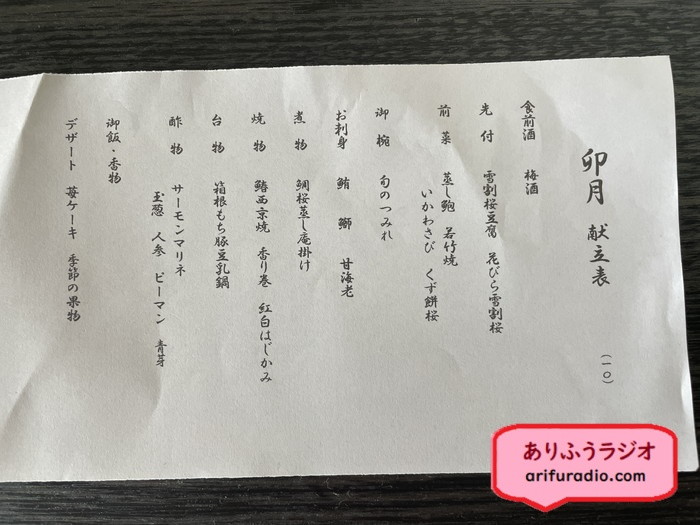 卯月 献立表 (一〇)
食前酒 梅酒
先付 雪割桜豆腐 花びら雪割桜
前菜 蒸し鮑 若竹焼
いかわさび くず餅桜
御椀 旬のつみれ
お刺身 鮪 鰤 甘海老
煮物 鯛桜蒸し庵掛け
焼物 鰆西京焼 香り巻 紅白はじかみ
台物 箱根もち豚豆乳鍋
酢物 サーモンマリネ
玉葱 人参 ピーマン 青芽
御飯・香物
デザート 苺ケーキ 季節の果物
ありふうラジオ
arifuradio.com